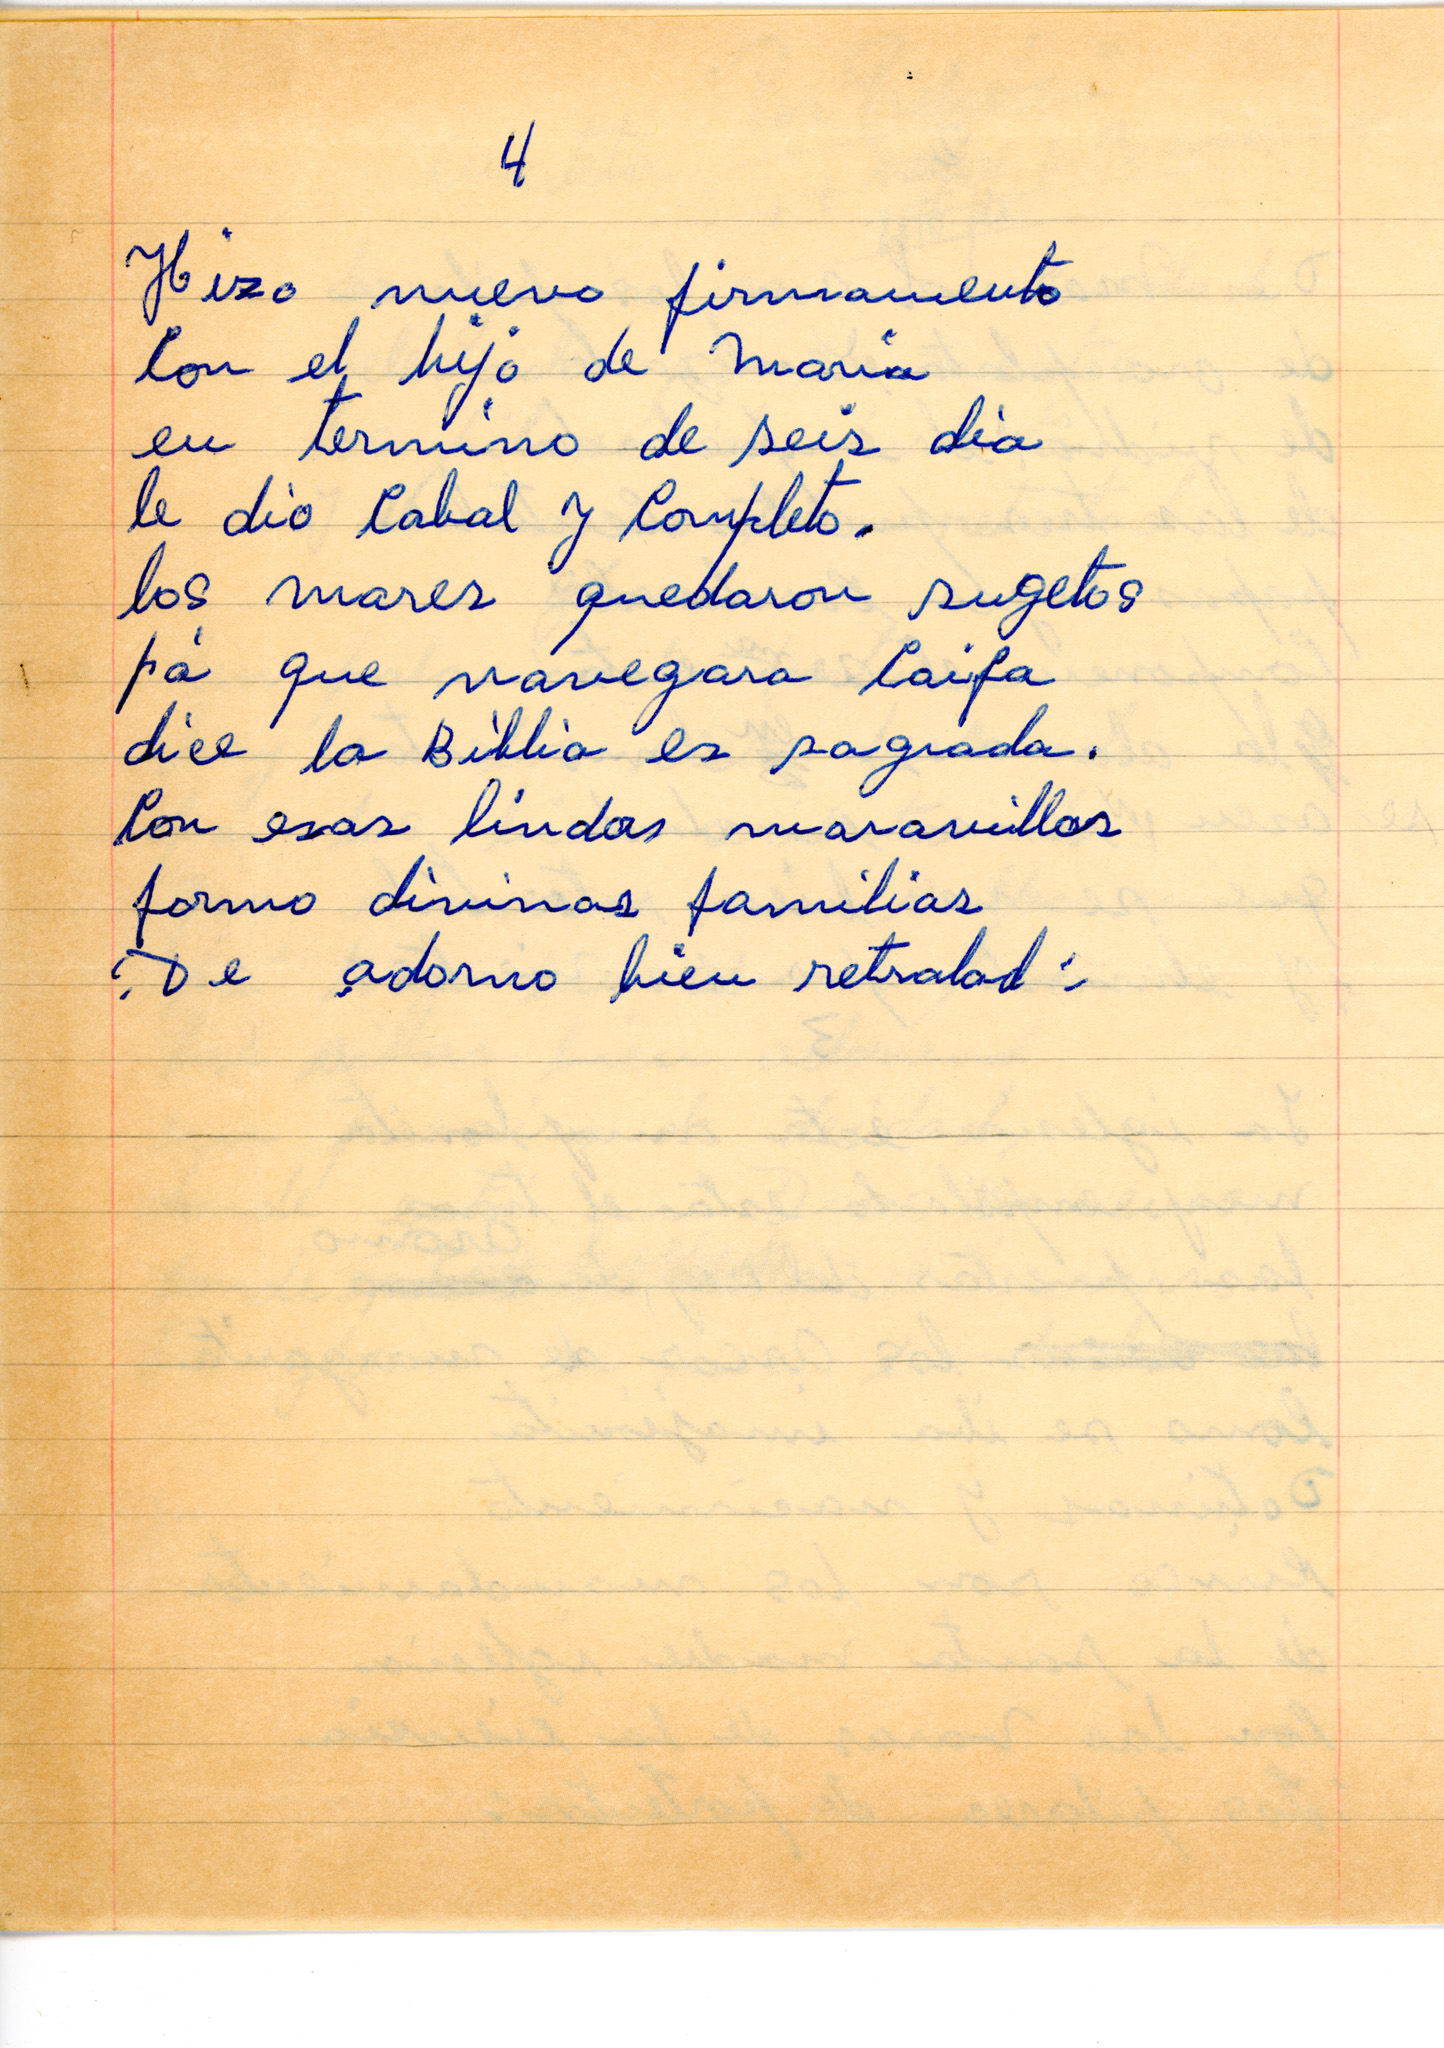 4
Hizo nuevo firmamento
Con el hijo de Maria
en termino de seis dia
le dio Cabal y Completo.
los mares quedaron sugetos
pá que navegara Caifa
dice la Biblia es sagrada.
Con esas lindas maravillas
formo divinas familias
De adorno bien retralad